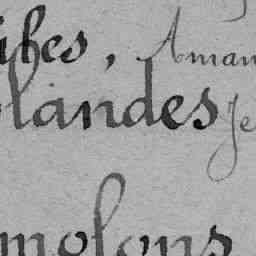 ches, Aman
landes Je
molons